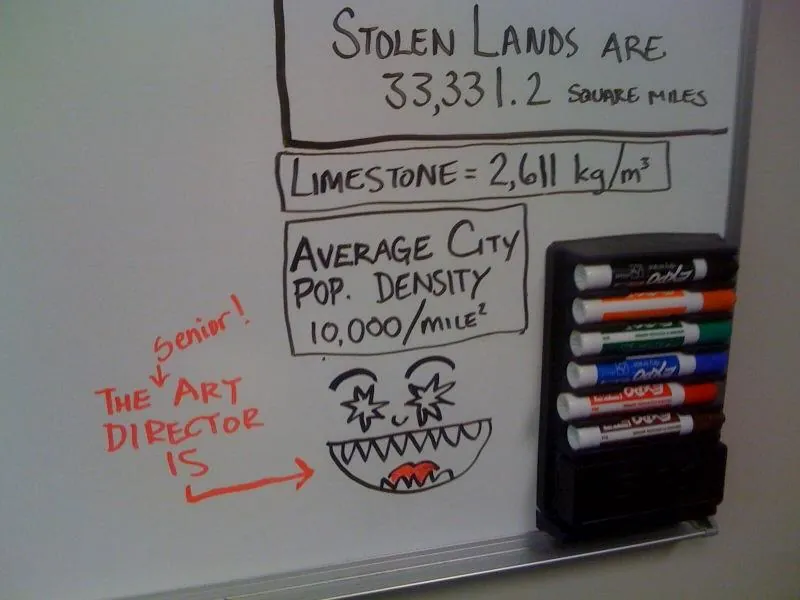 STOLEN LANDS ARE
33,331.2 SQUARE MILES
LIMESTONE = 2,611 kg/m³
AVERAGE CITY
POP. DENSITY
10,000/MILE²
Senior!
THE ART
DIRECTOR
IS
EXPO
EXPO
EXPO
EXPO